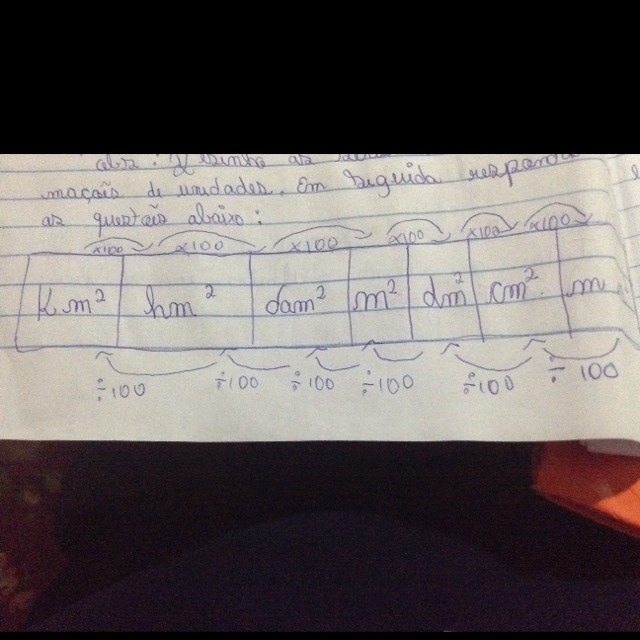 maçais de unidades. Em seguida responda
as questões abaixo:
x100 x100 x100 x100 x100 x100
Km² hm² dam² m² dm² cm² m
÷100 ÷100 ÷100 ÷100 ÷100 ÷100